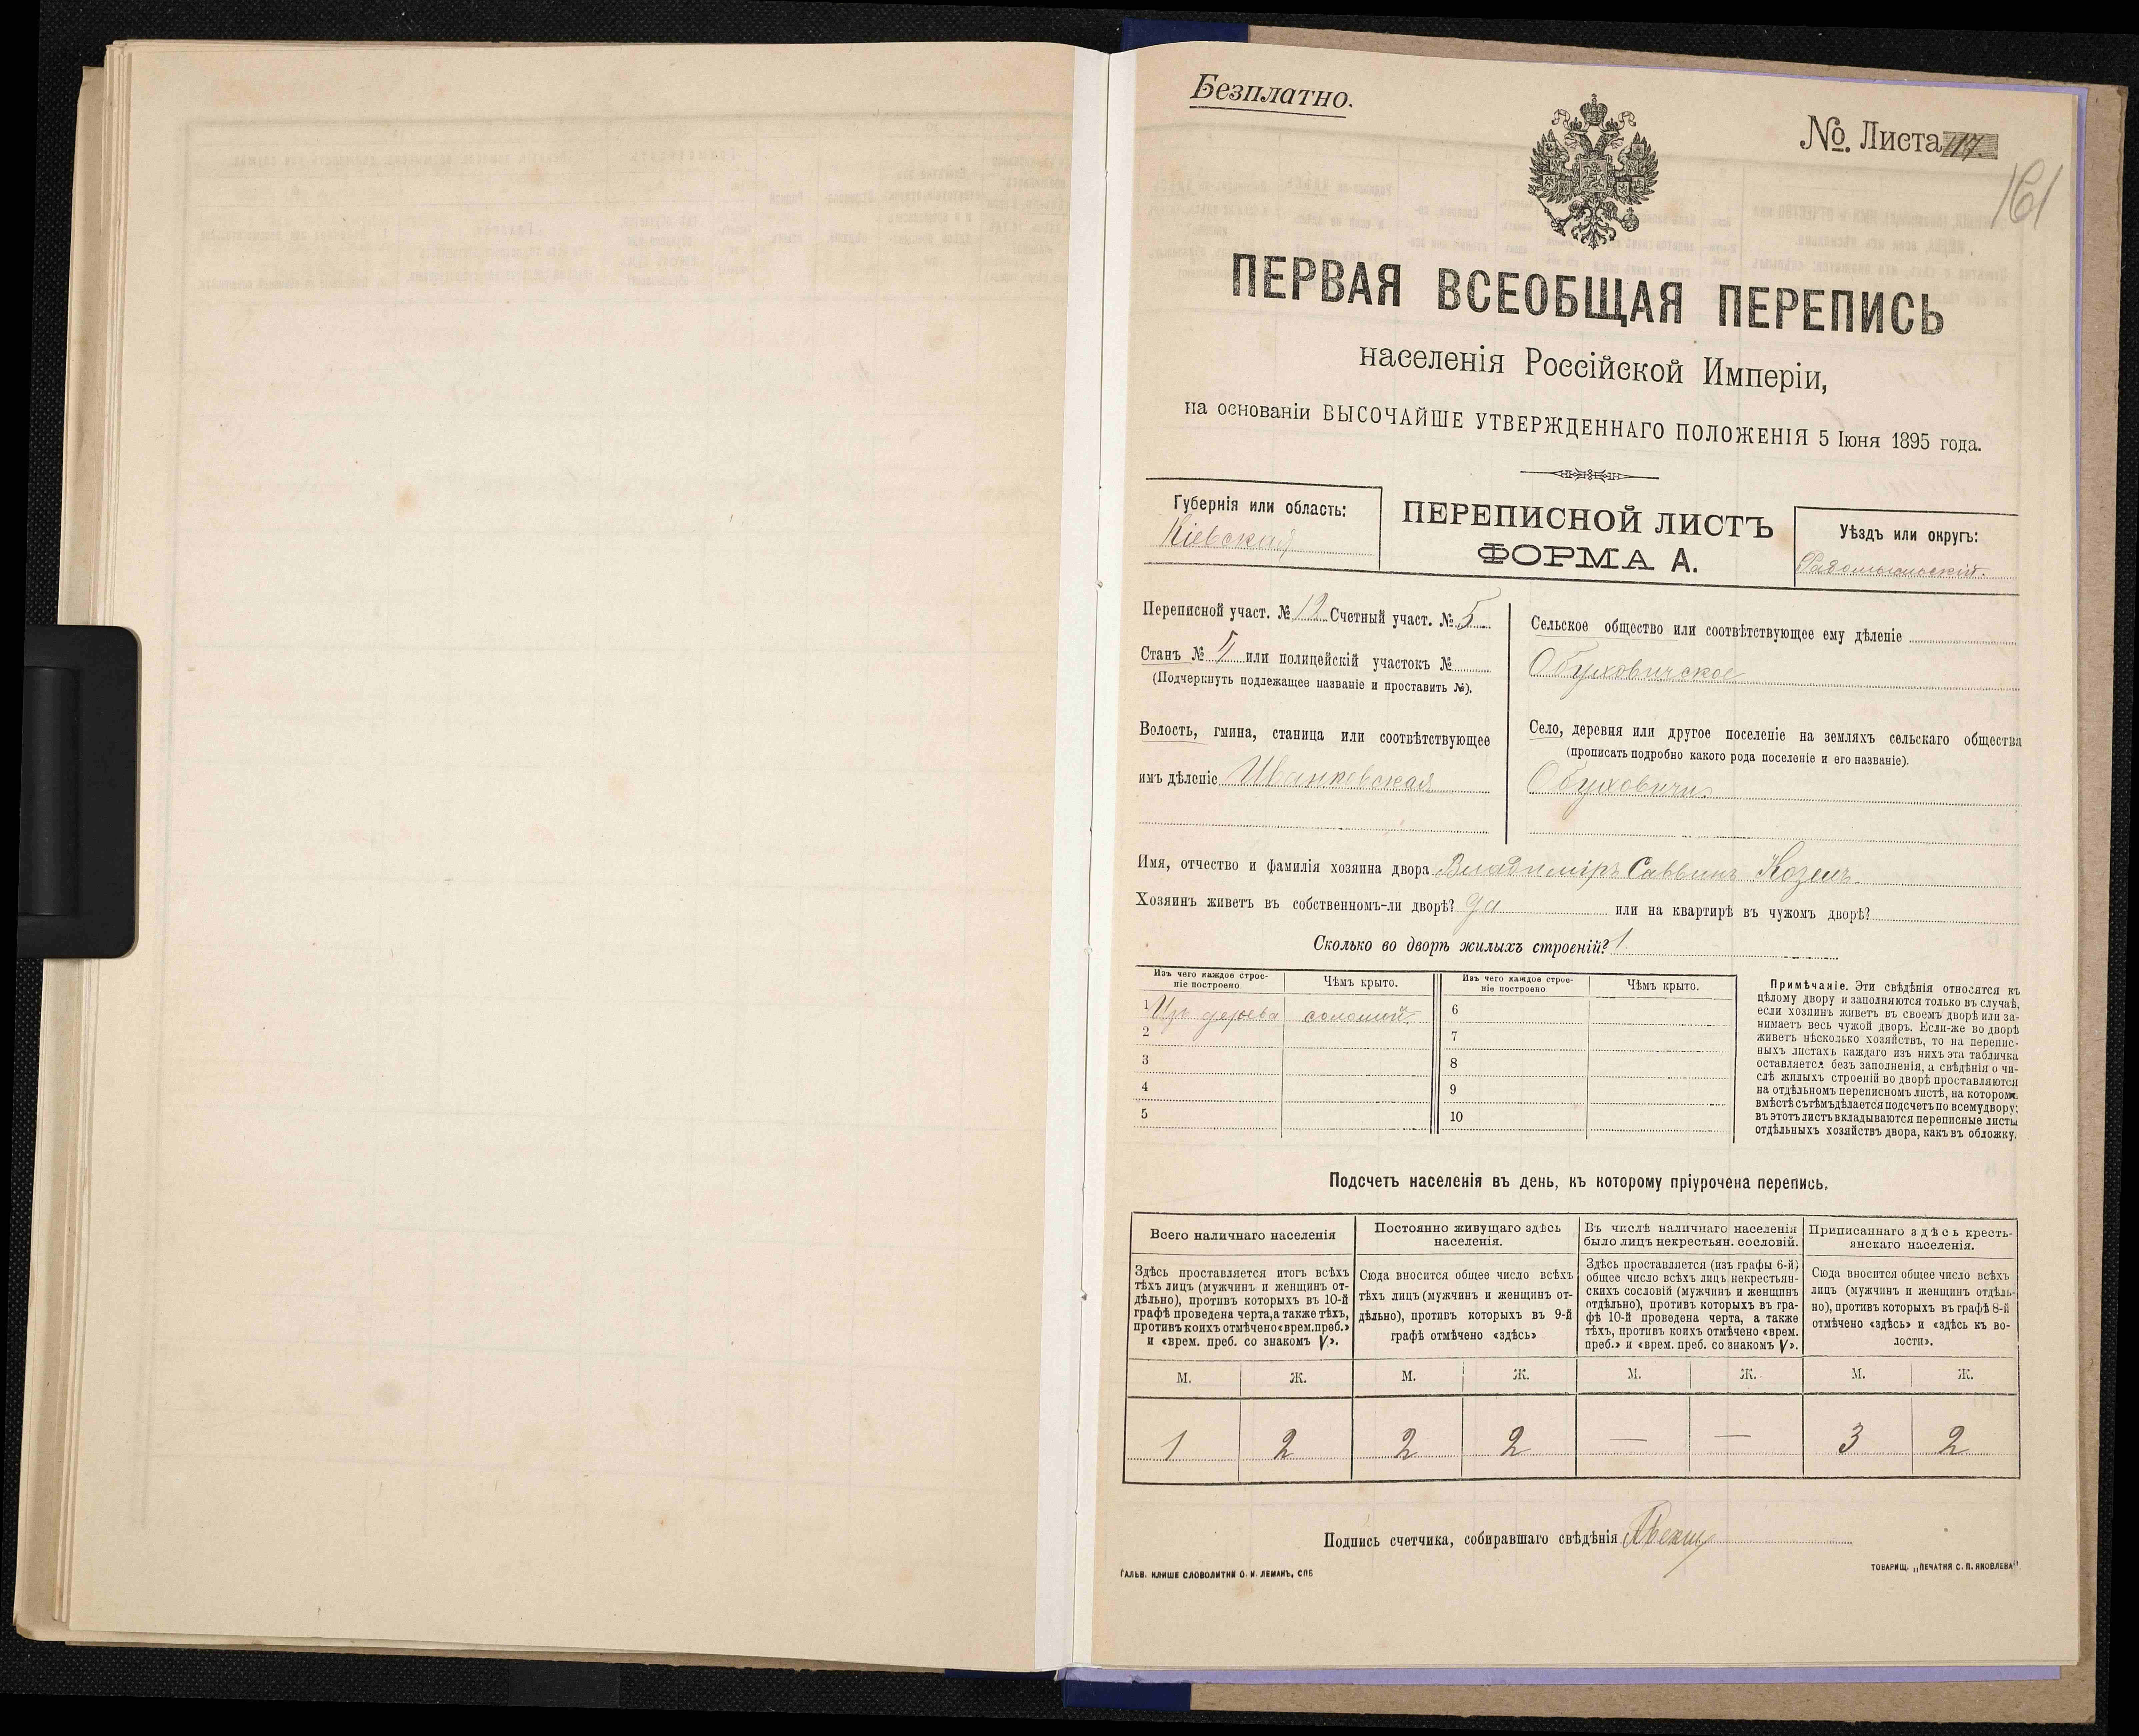 Безплатно.
№. Листа 117.
161
ПЕРВАЯ ВСЕОБЩАЯ ПЕРЕПИСЬ
населенія Россійской Имперіи,
на основаніи ВЫСОЧАЙШЕ УТВЕРЖДЕННАГО ПОЛОЖЕНІЯ 5 Іюня 1895 года.
Губернія или область:
Кіевская
ПЕРЕПИСНОЙ ЛИСТЪ
ФОРМА А.
Уѣздъ или округъ:
Радомысльскій.
Переписной участ. № 12 Счетный участ. № 5
Станъ № 5 или полицейскій участокъ №
(Подчеркнуть подлежащее названіе и проставить №).
Волость, гмина, станица или соотвѣтствующее
имъ дѣленіе Иванковская
Сельское общество или соотвѣтствующее ему дѣленіе
Обуховичское
Село, деревня или другое поселеніе на земляхъ сельскаго общества
(прописать подробно какого рода поселеніе и его названіе).
Обуховичи
Имя, отчество и фамилія хозяина двора Владиміръ Саввинъ Козелъ.
Хозяинъ живетъ въ собственномъ-ли дворѣ? да или на квартирѣ въ чужомъ дворѣ?
Сколько во дворѣ жилыхъ строеній? 1.
Изъ чего каждое строе-
ніе построено
Чѣмъ крыто.
Изъ чего каждое строе-
ніе построено
Чѣмъ крыто.
1 Изъ дерева соломой. 6
2 7
3 8
4 9
5 10
Примѣчаніе. Эти свѣдѣнія относятся къ
цѣлому двору и заполняются только въ случаѣ,
если хозяинъ живетъ въ своемъ дворѣ или за-
нимаетъ весь чужой дворъ. Если-же во дворѣ
живетъ нѣсколько хозяйствъ, то на перепис-
ныхъ листахъ каждаго изъ нихъ эта табличка
оставляется безъ заполненія, а свѣдѣнія о чи-
слѣ жилыхъ строеній во дворѣ проставляются
на отдѣльномъ переписномъ листѣ, на которомъ
вмѣстѣ съ тѣмъ дѣлается подсчетъ по всему двору;
въ этотъ листъ вкладываются переписные листы
отдѣльныхъ хозяйствъ двора, какъ въ обложку.
Подсчетъ населенія въ день, къ которому пріурочена перепись.
Всего наличнаго населенія
Здѣсь проставляется итогъ всѣхъ
тѣхъ лицъ (мужчинъ и женщинъ от-
дѣльно), противъ которыхъ въ 10-й
графѣ проведена черта, а также тѣхъ,
противъ коихъ отмѣчено «врем. преб.»
и «врем. преб. со знакомъ V».
Постоянно живущаго здѣсь
населенія.
Сюда вносится общее число всѣхъ
тѣхъ лицъ (мужчинъ и женщинъ от-
дѣльно), противъ которыхъ въ 9-й
графѣ отмѣчено «здѣсь»
Въ числѣ наличнаго населенія
было лицъ некрестьян. сословій.
Здѣсь проставляется (изъ графы 6-й)
общее число всѣхъ лицъ некрестьян-
скихъ сословій (мужчинъ и женщинъ
отдѣльно), противъ которыхъ въ гра-
фѣ 10-й проведена черта, а также
тѣхъ, противъ коихъ отмѣчено «врем.
преб.» и «врем. преб. со знакомъ V».
Приписаннаго здѣсь кресть-
янскаго населенія.
Сюда вносится общее число всѣхъ
лицъ (мужчинъ и женщинъ отдѣль-
но), противъ которыхъ въ графѣ 8-й
отмѣчено «здѣсь» и «здѣсь къ во-
лости».
М. Ж. М. Ж. М. Ж. М. Ж.
1 2 2 2 — — 3 2
Подпись счетчика, собиравшаго свѣдѣнія
ГАЛЬВ. КЛИШЕ СЛОВОЛИТНИ О. И. ЛЕМАНЪ, СПБ
ТОВАРИЩ. „ПЕЧАТНЯ С. П. ЯКОВЛЕВА"